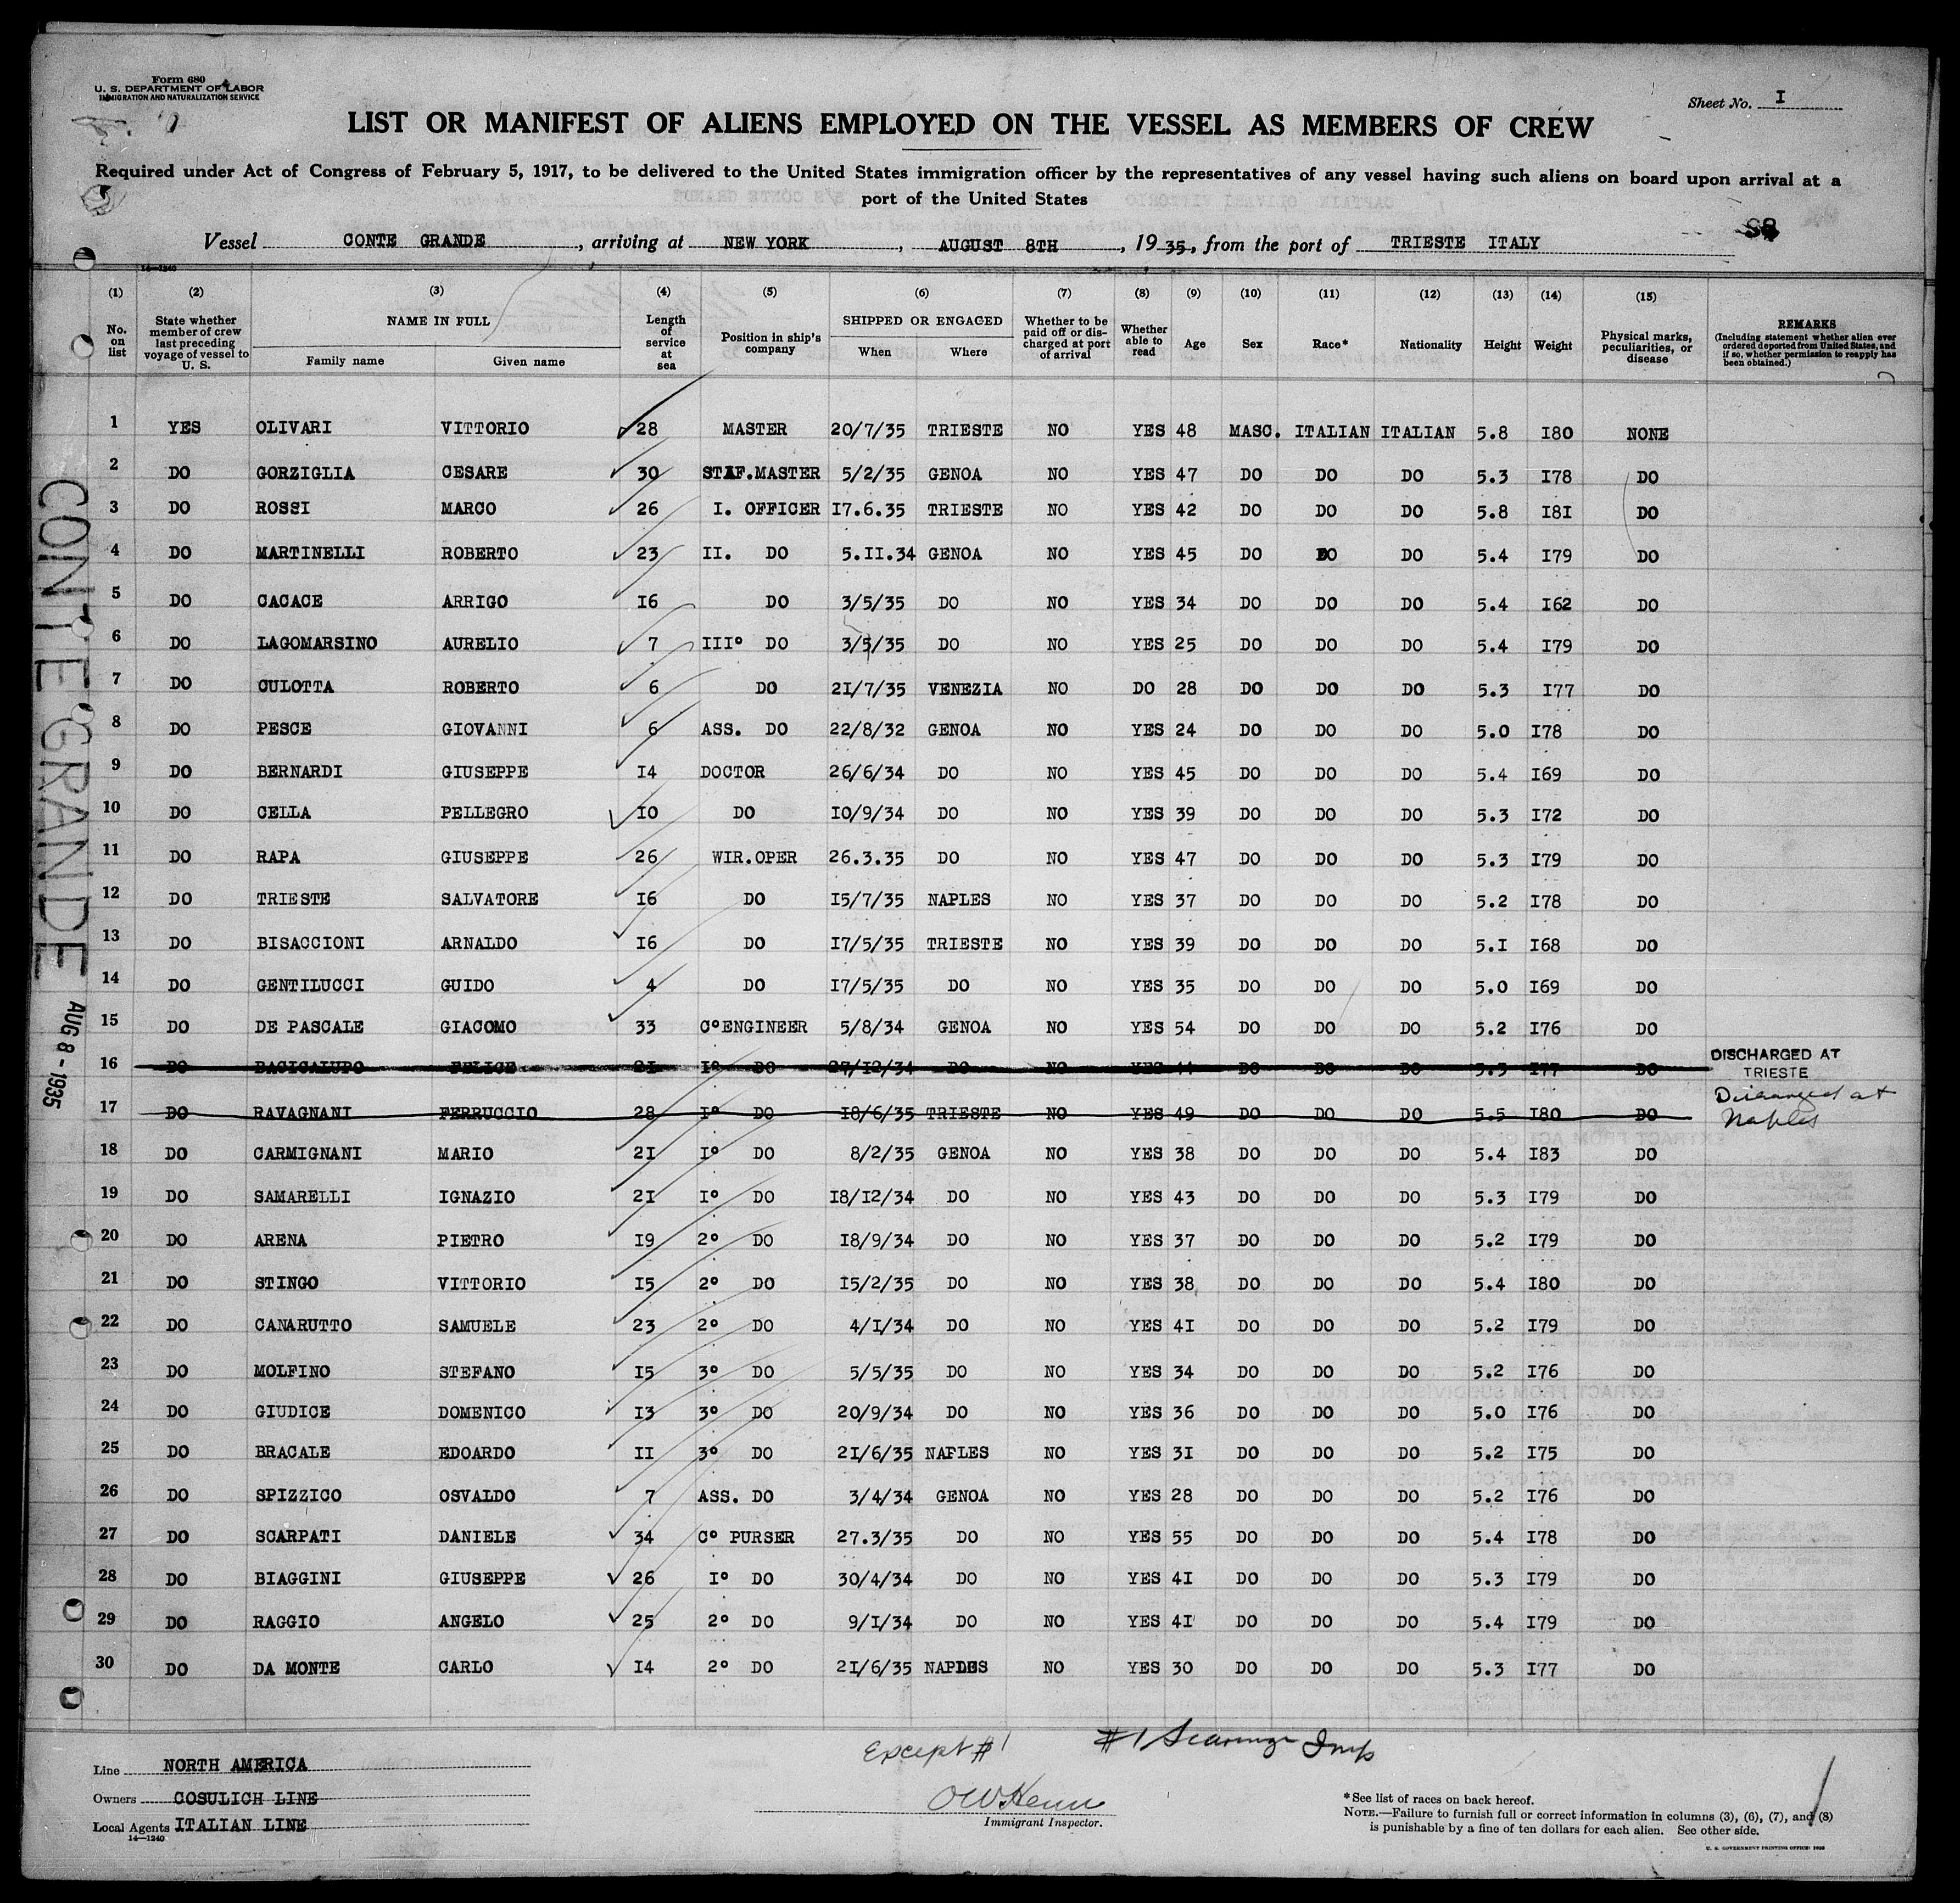 Form 680
U. S. DEPARTMENT OF LABOR
IMMIGRATION AND NATURALIZATION SERVICE
Sheet No. I
LIST OR MANIFEST OF ALIENS EMPLOYED ON THE VESSEL AS MEMBERS OF CREW
Required under Act of Congress of February 5, 1917, to be delivered to the United States immigration officer by the representatives of any vessel having such aliens on board upon arrival at a
port of the United States
Vessel CONTE GRANDE, arriving at NEW YORK, AUGUST 8TH, 1935, from the port of TRIESTE ITALY
14—1240
(1) (2) (3) (4) (5) (6) (7) (8) (9) (10) (11) (12) (13) (14) (15)
No. on list
State whether member of crew last preceding voyage of vessel to U. S.
NAME IN FULL
Family name Given name
Length of service at sea
Position in ship's company
SHIPPED OR ENGAGED
When Where
Whether to be paid off or discharged at port of arrival
Whether able to read
Age
Sex
Race*
Nationality
Height
Weight
Physical marks, peculiarities, or disease
REMARKS
(Including statement whether alien ever ordered deported from United States, and if so, whether permission to reapply has been obtained.)
1 YES OLIVARI VITTORIO 28 MASTER 20/7/35 TRIESTE NO YES 48 MASC. ITALIAN ITALIAN 5.8 I80 NONE
2 DO GORZIGLIA CESARE 30 STAF.MASTER 5/2/35 GENOA NO YES 47 DO DO DO 5.3 I78 DO
3 DO ROSSI MARCO 26 I. OFFICER I7.6.35 TRIESTE NO YES 42 DO DO DO 5.8 I8I DO
4 DO MARTINELLI ROBERTO 23 II. DO 5.II.34 GENOA NO YES 45 DO DO DO 5.4 I79 DO
5 DO CACACE ARRIGO I6 DO 3/5/35 DO NO YES 34 DO DO DO 5.4 I62 DO
6 DO LAGOMARSINO AURELIO 7 IIIº DO 3/5/35 DO NO YES 25 DO DO DO 5.4 I79 DO
7 DO CULOTTA ROBERTO 6 DO 2I/7/35 VENEZIA NO DO 28 DO DO DO 5.3 I77 DO
8 DO PESCE GIOVANNI 6 ASS. DO 22/8/32 GENOA NO YES 24 DO DO DO 5.0 I78 DO
9 DO BERNARDI GIUSEPPE I4 DOCTOR 26/6/34 DO NO YES 45 DO DO DO 5.4 I69 DO
10 DO CELLA PELLEGRO I0 DO I0/9/34 DO NO YES 39 DO DO DO 5.3 I72 DO
11 DO RAPA GIUSEPPE 26 WIR.OPER 26.3.35 DO NO YES 47 DO DO DO 5.3 I79 DO
12 DO TRIESTE SALVATORE I6 DO I5/7/35 NAPLES NO YES 37 DO DO DO 5.2 I78 DO
13 DO BISACCIONI ARNALDO I6 DO I7/5/35 TRIESTE NO YES 39 DO DO DO 5.I I68 DO
14 DO GENTILUCCI GUIDO 4 DO I7/5/35 DO NO YES 35 DO DO DO 5.0 I69 DO
15 DO DE PASCALE GIACOMO 33 CºENGINEER 5/8/34 GENOA NO YES 54 DO DO DO 5.2 I76 DO
16 DO BACIGALUPO FELICE 2I Iº DO 27/I2/34 DO NO YES 44 DO DO DO 5.5 I77 DO DISCHARGED AT TRIESTE
17 DO RAVAGNANI FERRUCCIO 28 Iº DO I8/6/35 TRIESTE NO YES 49 DO DO DO 5.5 I80 DO Discharged at Naples
18 DO CARMIGNANI MARIO 2I Iº DO 8/2/35 GENOA NO YES 38 DO DO DO 5.4 I83 DO
19 DO SAMARELLI IGNAZIO 2I Iº DO I8/I2/34 DO NO YES 43 DO DO DO 5.3 I79 DO
20 DO ARENA PIETRO I9 2º DO I8/9/34 DO NO YES 37 DO DO DO 5.2 I79 DO
21 DO STINGO VITTORIO I5 2º DO I5/2/35 DO NO YES 38 DO DO DO 5.4 I80 DO
22 DO CANARUTTO SAMUELE 23 2º DO 4/I/34 DO NO YES 4I DO DO DO 5.2 I79 DO
23 DO MOLFINO STEFANO I5 3º DO 5/5/35 DO NO YES 34 DO DO DO 5.2 I76 DO
24 DO GIUDICE DOMENICO I3 3º DO 20/9/34 DO NO YES 36 DO DO DO 5.0 I76 DO
25 DO BRACALE EDOARDO II 3º DO 2I/6/35 NAPLES NO YES 3I DO DO DO 5.2 I75 DO
26 DO SPIZZICO OSVALDO 7 ASS. DO 3/4/34 GENOA NO YES 28 DO DO DO 5.2 I76 DO
27 DO SCARPATI DANIELE 34 Cº PURSER 27.3/35 DO NO YES 55 DO DO DO 5.4 I78 DO
28 DO BIAGGINI GIUSEPPE 26 Iº DO 30/4/34 DO NO YES 4I DO DO DO 5.3 I79 DO
29 DO RAGGIO ANGELO 25 2º DO 9/I/34 DO NO YES 4I DO DO DO 5.4 I79 DO
30 DO DA MONTE CARLO I4 2º DO 2I/6/35 NAPLES NO YES 30 DO DO DO 5.3 I77 DO
CONTE GRANDE
AUG 8 - 1935
Except #1
#1
Line NORTH AMERICA
Owners COSULICH LINE
Local Agents ITALIAN LINE
14—1240
Immigrant Inspector.
* See list of races on back hereof.
NOTE.—Failure to furnish full or correct information in columns (3), (6), (7), and (8)
is punishable by a fine of ten dollars for each alien. See other side.
U. S. GOVERNMENT PRINTING OFFICE: